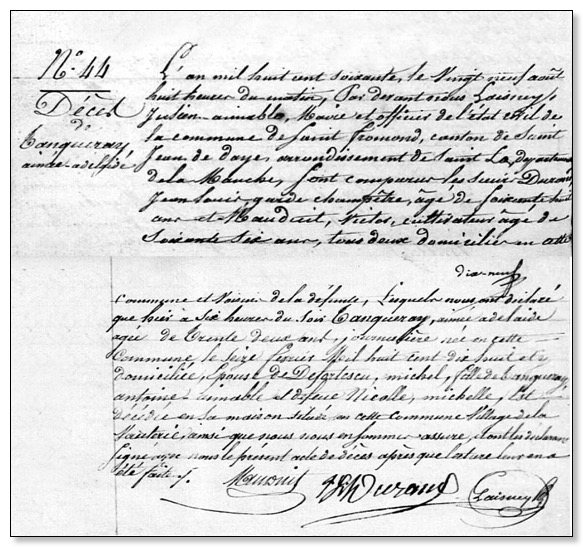 N.° 44
Décès
de
Tanqueray
aimée adelaïde
L'an mil huit cent soixante, le Vingt neuf août
huit heures du matin, Par devant nous Laisney,
Julien aimable, Maire et officier de l'état civil de
la commune de saint fromond, canton de Saint
Jean de daye, arrondissement de Saint Lo, département
de la Manche, sont comparus les sieurs Durand
Jean Louis, garde champêtre, âgé de soixante huit
ans et Mauduit, Victor, cultivateur âgé de
Soixante Six ans, tous deux domiciliés en cette
19 neuf
Commune et Voisins de la défunte, Lesquels nous ont déclaré
que hier à Six heures du Soir Tanqueray, aimée adelaide
agée de Trente deux ans, journalière née en cette
Commune le Seize fevrier Mil huit cent dix huit et y
domiciliée, Epouse de Defortescu, michel, fille de tanqueray,
antoine aimable et de feue Nicolle, michelle, Est
décédée en sa maison située en cette Commune Village de la
ainsi que nous nous en sommes assuré, et ont les déclarans
Signé avec nous le présent acte de décès après que lecture leur en a
été faite.
Mauduit JLh Durand Laisney